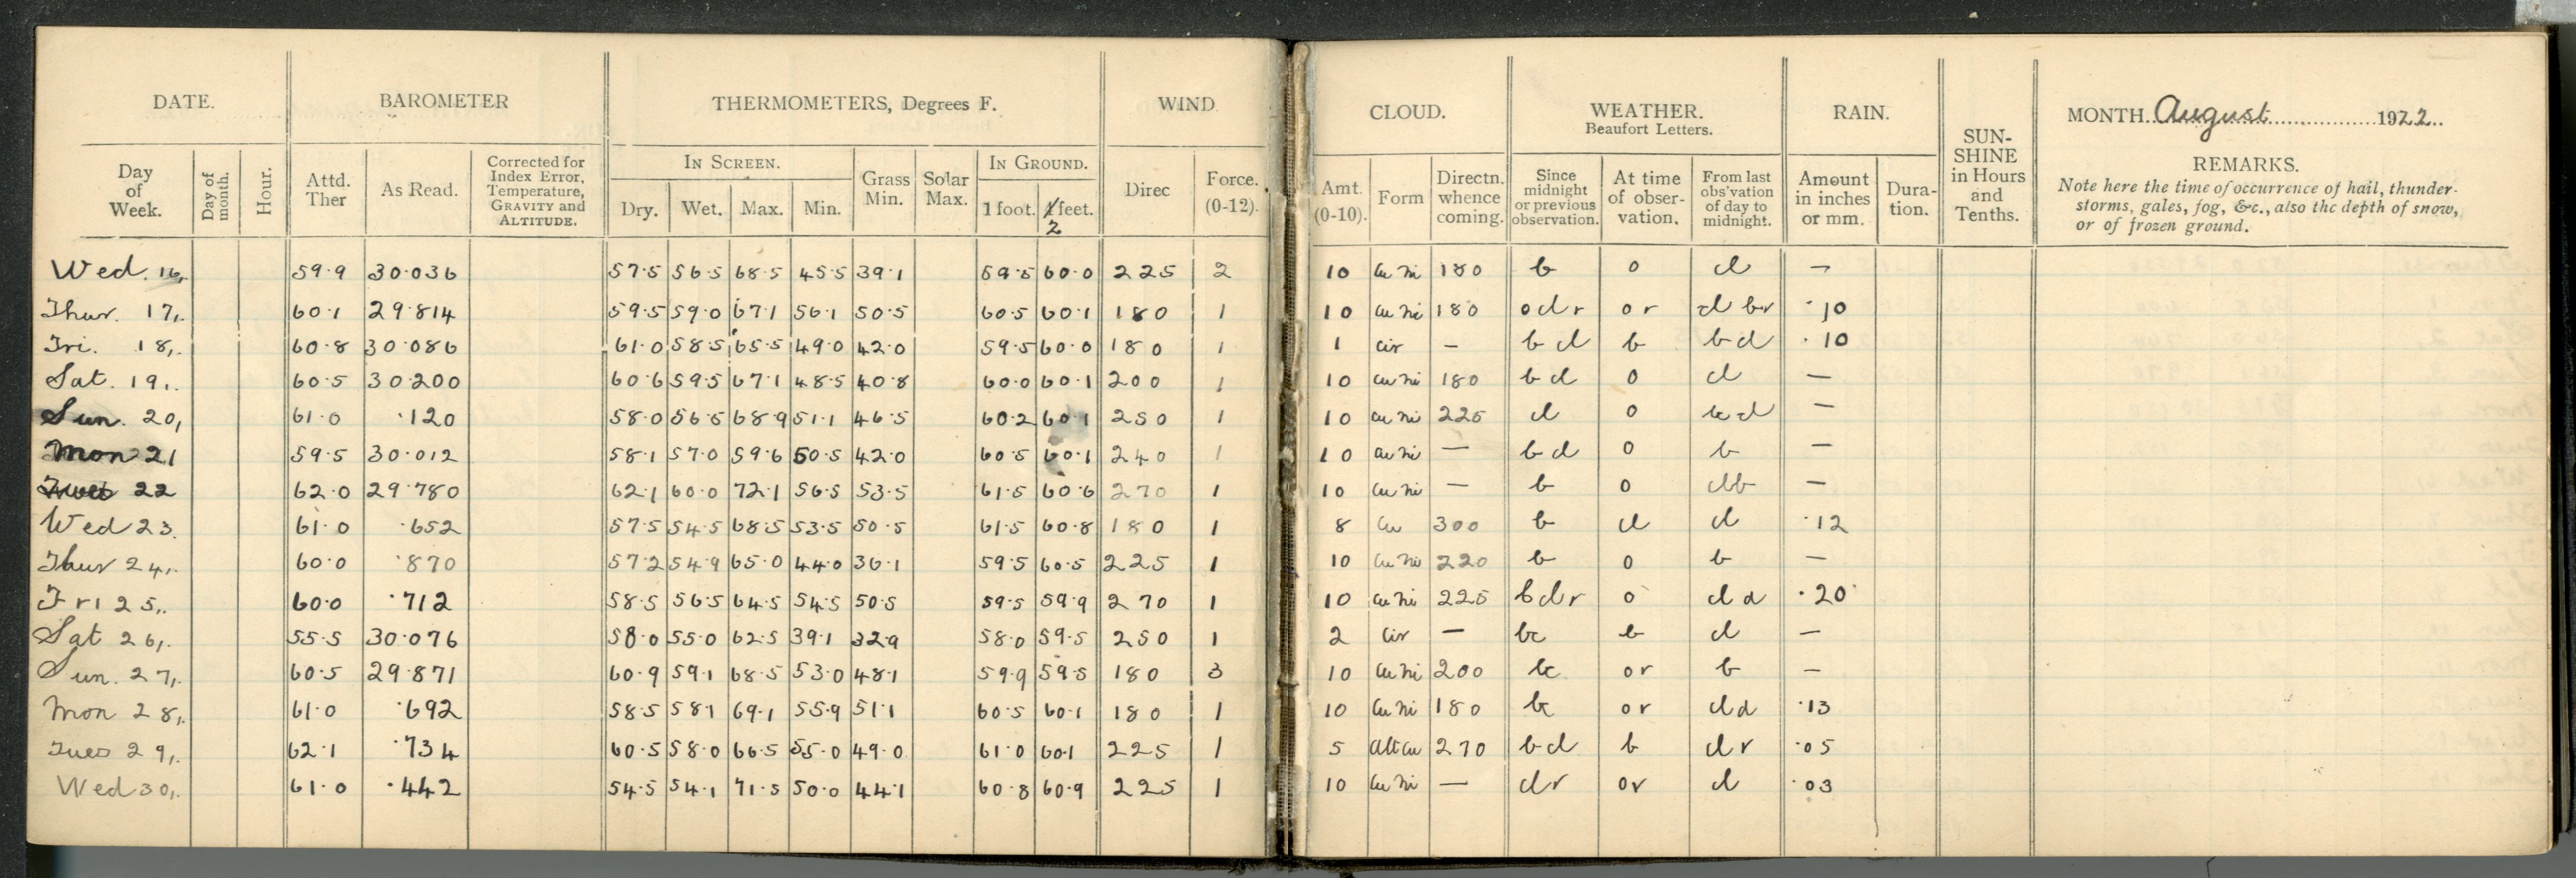 DATE. BAROMETER THERMOMETERS, Degrees F. WIND CLOUD. WEATHER. Beaufort Letters. RAIN. SUN-SHINE in Hours and Tenths. MONTH August 1922
Day of Week. Day of month. Hour. Attd. Ther As Read. Corrected for Index Error, Temperature, GRAVITY and ALTITUDE. IN SCREEN. Dry. Wet. Max. Min. Grass Min. Solar Max. IN GROUND. 1 foot. 2 feet. Direc Force. (0-12). Amt. (0-10). Form Directn. whence coming. Since midnight or previous observation. At time of obser-vation. From last obs'vation of day to midnight. Amount in inches or mm. Dura-tion.
REMARKS.
Note here the time of occurrence of hail, thunder-
storms, gales, fog, &c., also the depth of snow,
or of frozen ground.
Wed. 16, 59.9 30.036 57.5 56.5 68.5 45.5 39.1 59.5 60.0 225 2 10 cu ni 180 b o cl —
Thur. 17, 60.1 29.814 59.5 59.0 67.1 56.1 50.5 60.5 60.1 180 1 10 cu ni 180 o d r o r .10
Fri. 18, 60.8 30.086 61.0 58.5 65.5 49.0 42.0 59.5 60.0 180 1 1 cir — b cl b b cl .10
Sat. 19, 60.5 30.200 60.6 59.5 67.1 48.5 40.8 60.0 60.1 200 1 10 cu ni 180 b cl o cl —
Sun. 20, 61.0 .120 58.0 56.5 68.9 51.1 46.5 60.2 60.1 250 1 10 cu ni 225 cl o —
Mon 21 59.5 30.012 58.1 57.0 59.6 50.5 42.0 60.5 60.1 240 1 10 cu ni — b cl o b —
Tues 22 62.0 29.780 62.1 60.0 72.1 56.5 53.5 61.5 60.6 270 1 10 cu ni — b o cl b —
Wed 23. 61.0 .652 57.5 54.5 68.5 53.5 50.5 61.5 60.8 180 1 8 cu 300 b cl cl .12
Thur 24, 60.0 .870 57.2 54.9 65.0 44.0 36.1 59.5 60.5 225 1 10 cu ni 220 b o b —
Fri 25, 60.0 .712 58.5 56.5 64.5 54.5 50.5 59.5 59.9 270 1 10 cu ni 225 b cl r o cl d .20
Sat 26, 55.5 30.076 58.0 55.0 62.5 39.1 32.9 58.0 59.5 250 1 2 cir — bc b cl —
Sun. 27, 60.5 29.871 60.9 59.1 68.5 53.0 48.1 59.9 59.5 180 3 10 cu ni 200 bc o r b —
Mon 28, 61.0 .692 58.5 58.1 69.1 55.9 51.1 60.5 60.1 180 1 10 cu ni 180 bc o r cl d .13
Tues 29, 62.1 .734 60.5 58.0 66.5 55.0 49.0 61.0 60.1 225 1 5 alt cu 270 b cl b cl r .05
Wed 30, 61.0 .442 54.5 54.1 71.5 50.0 44.1 60.8 60.9 225 1 10 cu ni — cl r or cl .03